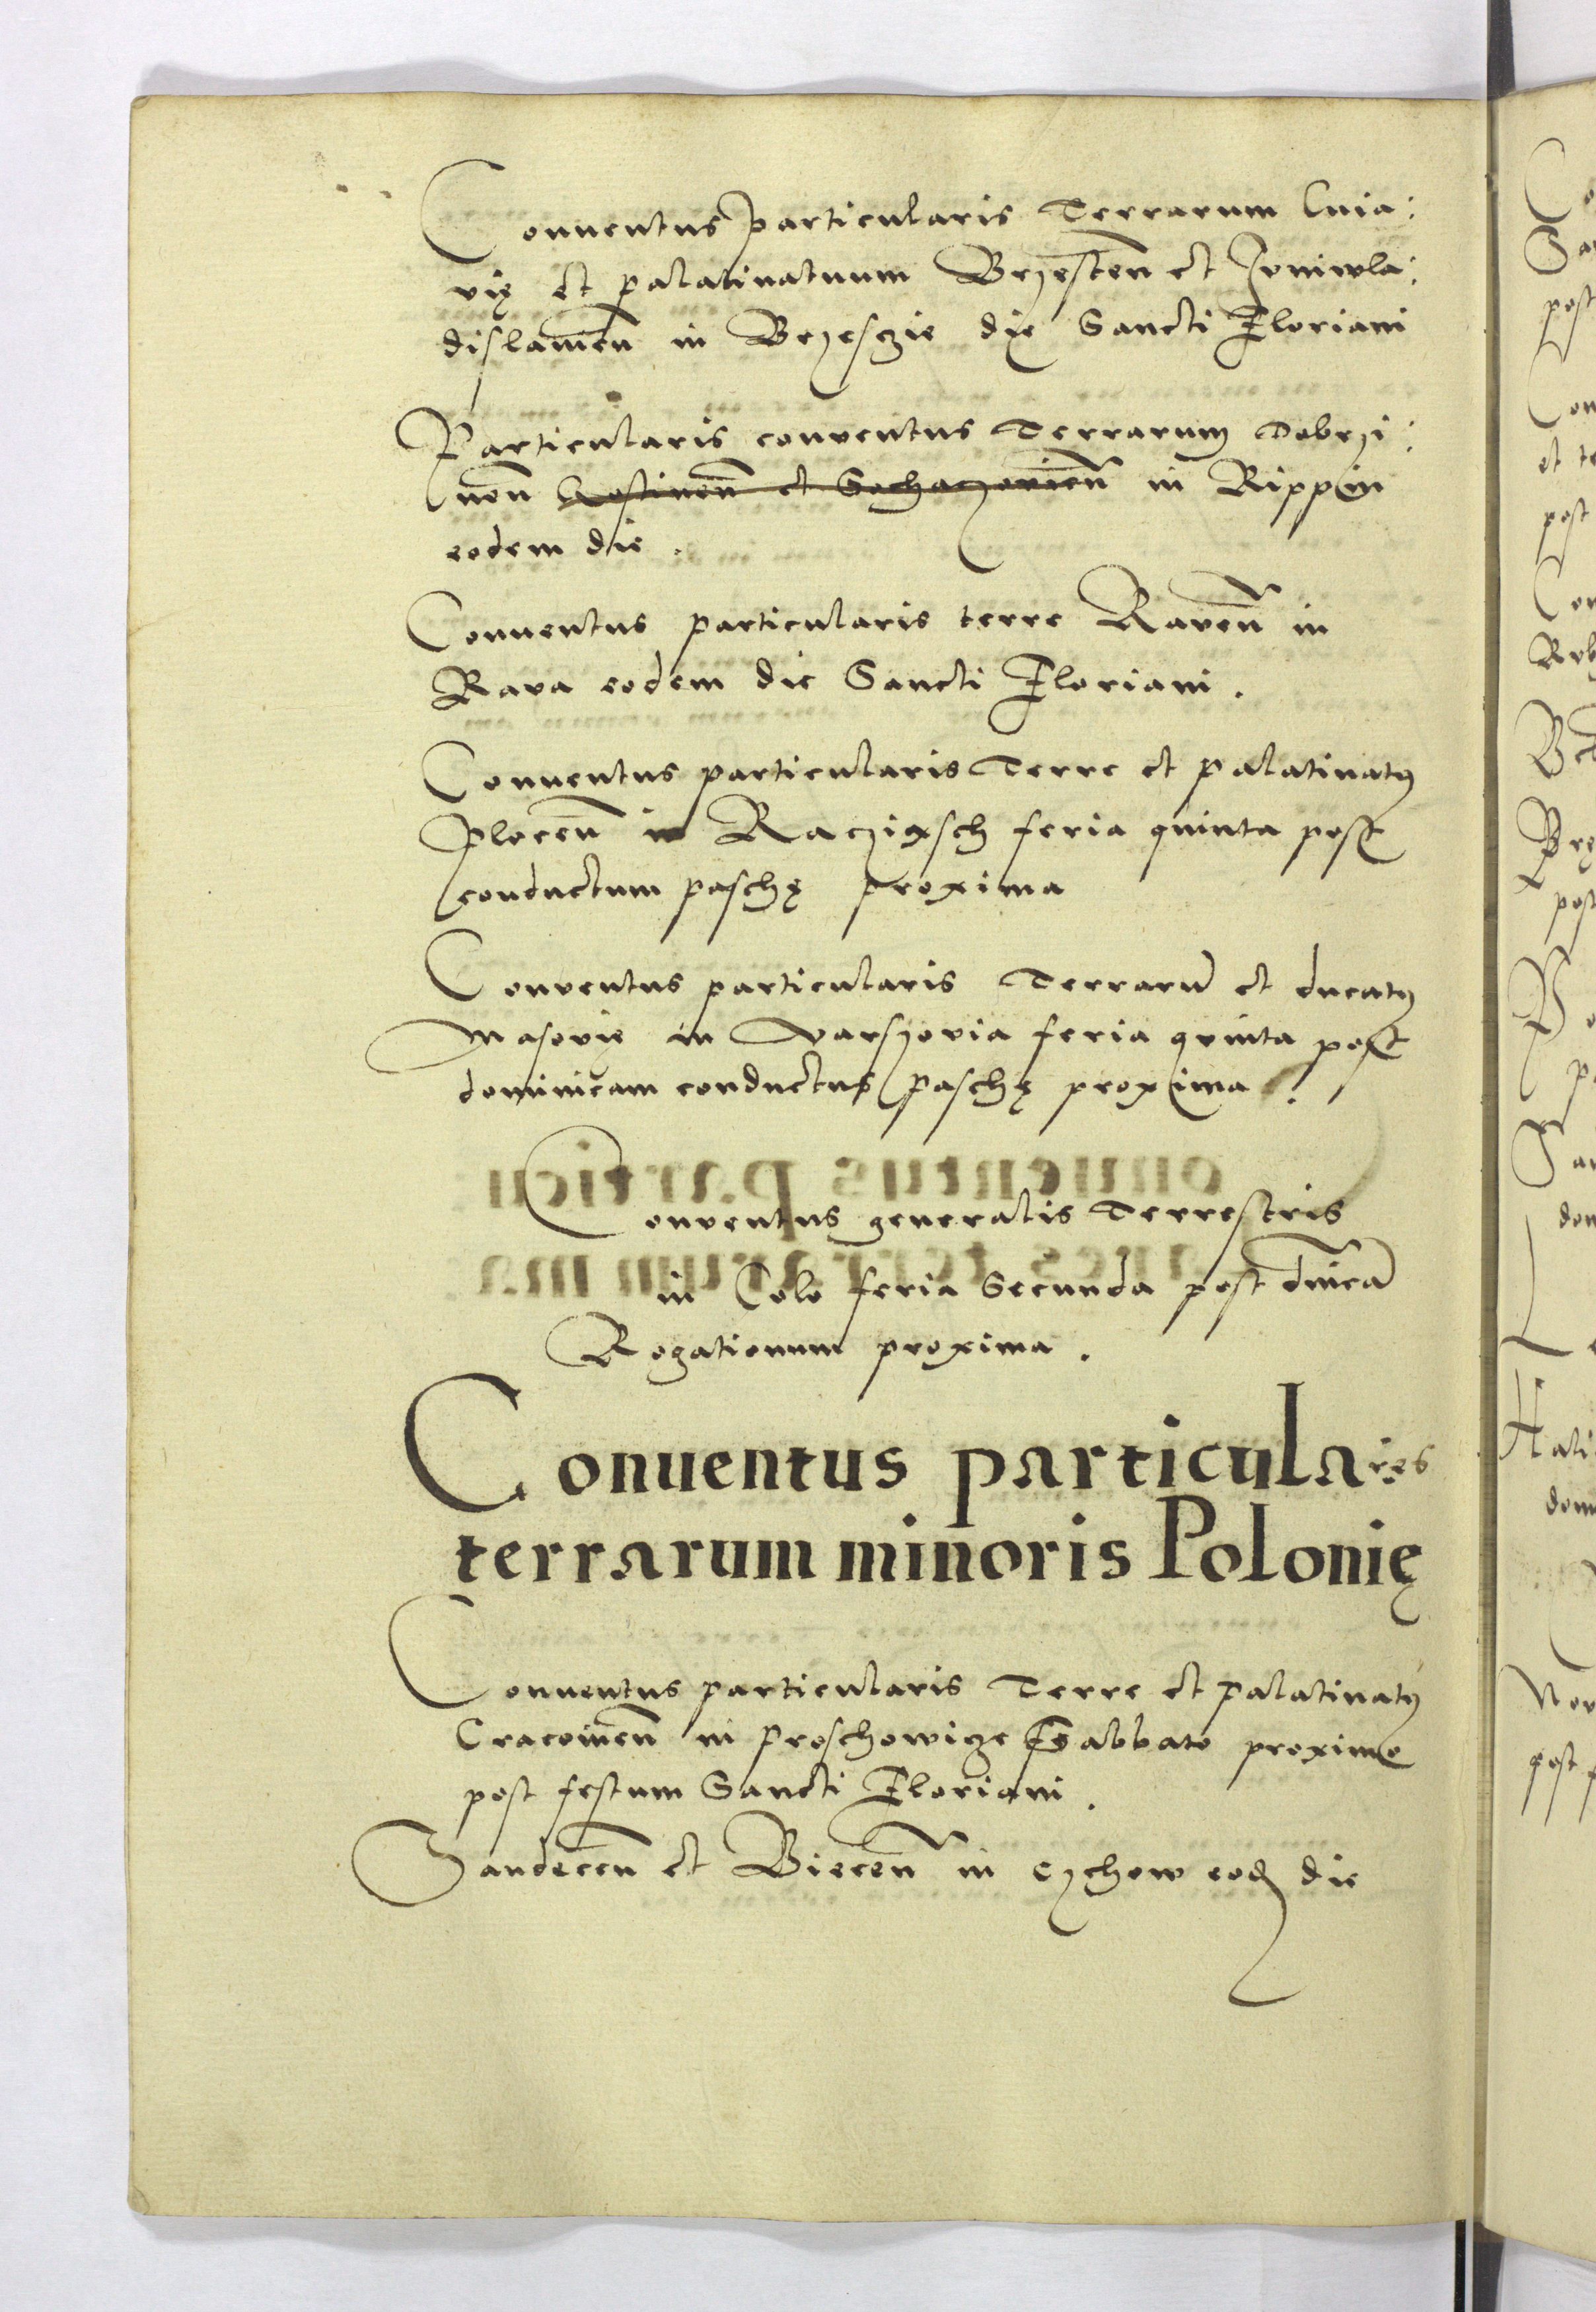 Conuentus particularis Terrarum Cuia:
vię et palatinatuum Brzesten̄ et Juniwla:
dislauien̄ in Brzesczie die Sancti Floriani
Particularis conventus Terrarum Dobrzi:
nen̄ Gostinen̄ et Sochaczovien̄ in Rippin
eodem die.
Conuentus particularis terre Raven̄ in
Rava eodem die Sancti Floriani.
Conuentus particularis Terre et palatinatꝯ
Plocen̄ in Racziąsch feria quinta post
conductum paschę proxima
Conventus particularis Terrarū et ducatꝯ
Masovię in Varszovia feria qvinta post
dominicam conductus paschę proxima.
Conventus generalis Terrestris
in Colo feria Secunda post dn̄icā
Rogationum proxima.
Conuentus particulares
terrarum minoris Polonię
Conuentus particularis Terre et palatinatꝯ
Cracouien̄ in Proschowicze Sabbato proximo
post festum Sancti Floriani.
Sandecen̄ et Biecen̄ in Czchow eod̄ die
Co
post
Con
et te
post
post
dom
Hali
dom
Nov
post f